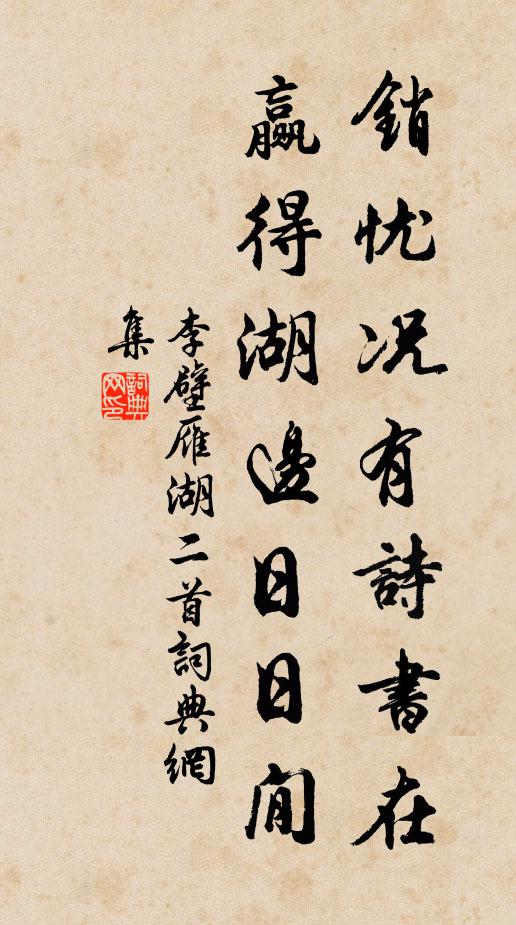 銷忧况有詩書在
贏得湖邊日日閒
李壁雁湖二首詞典網
集
詞典网印